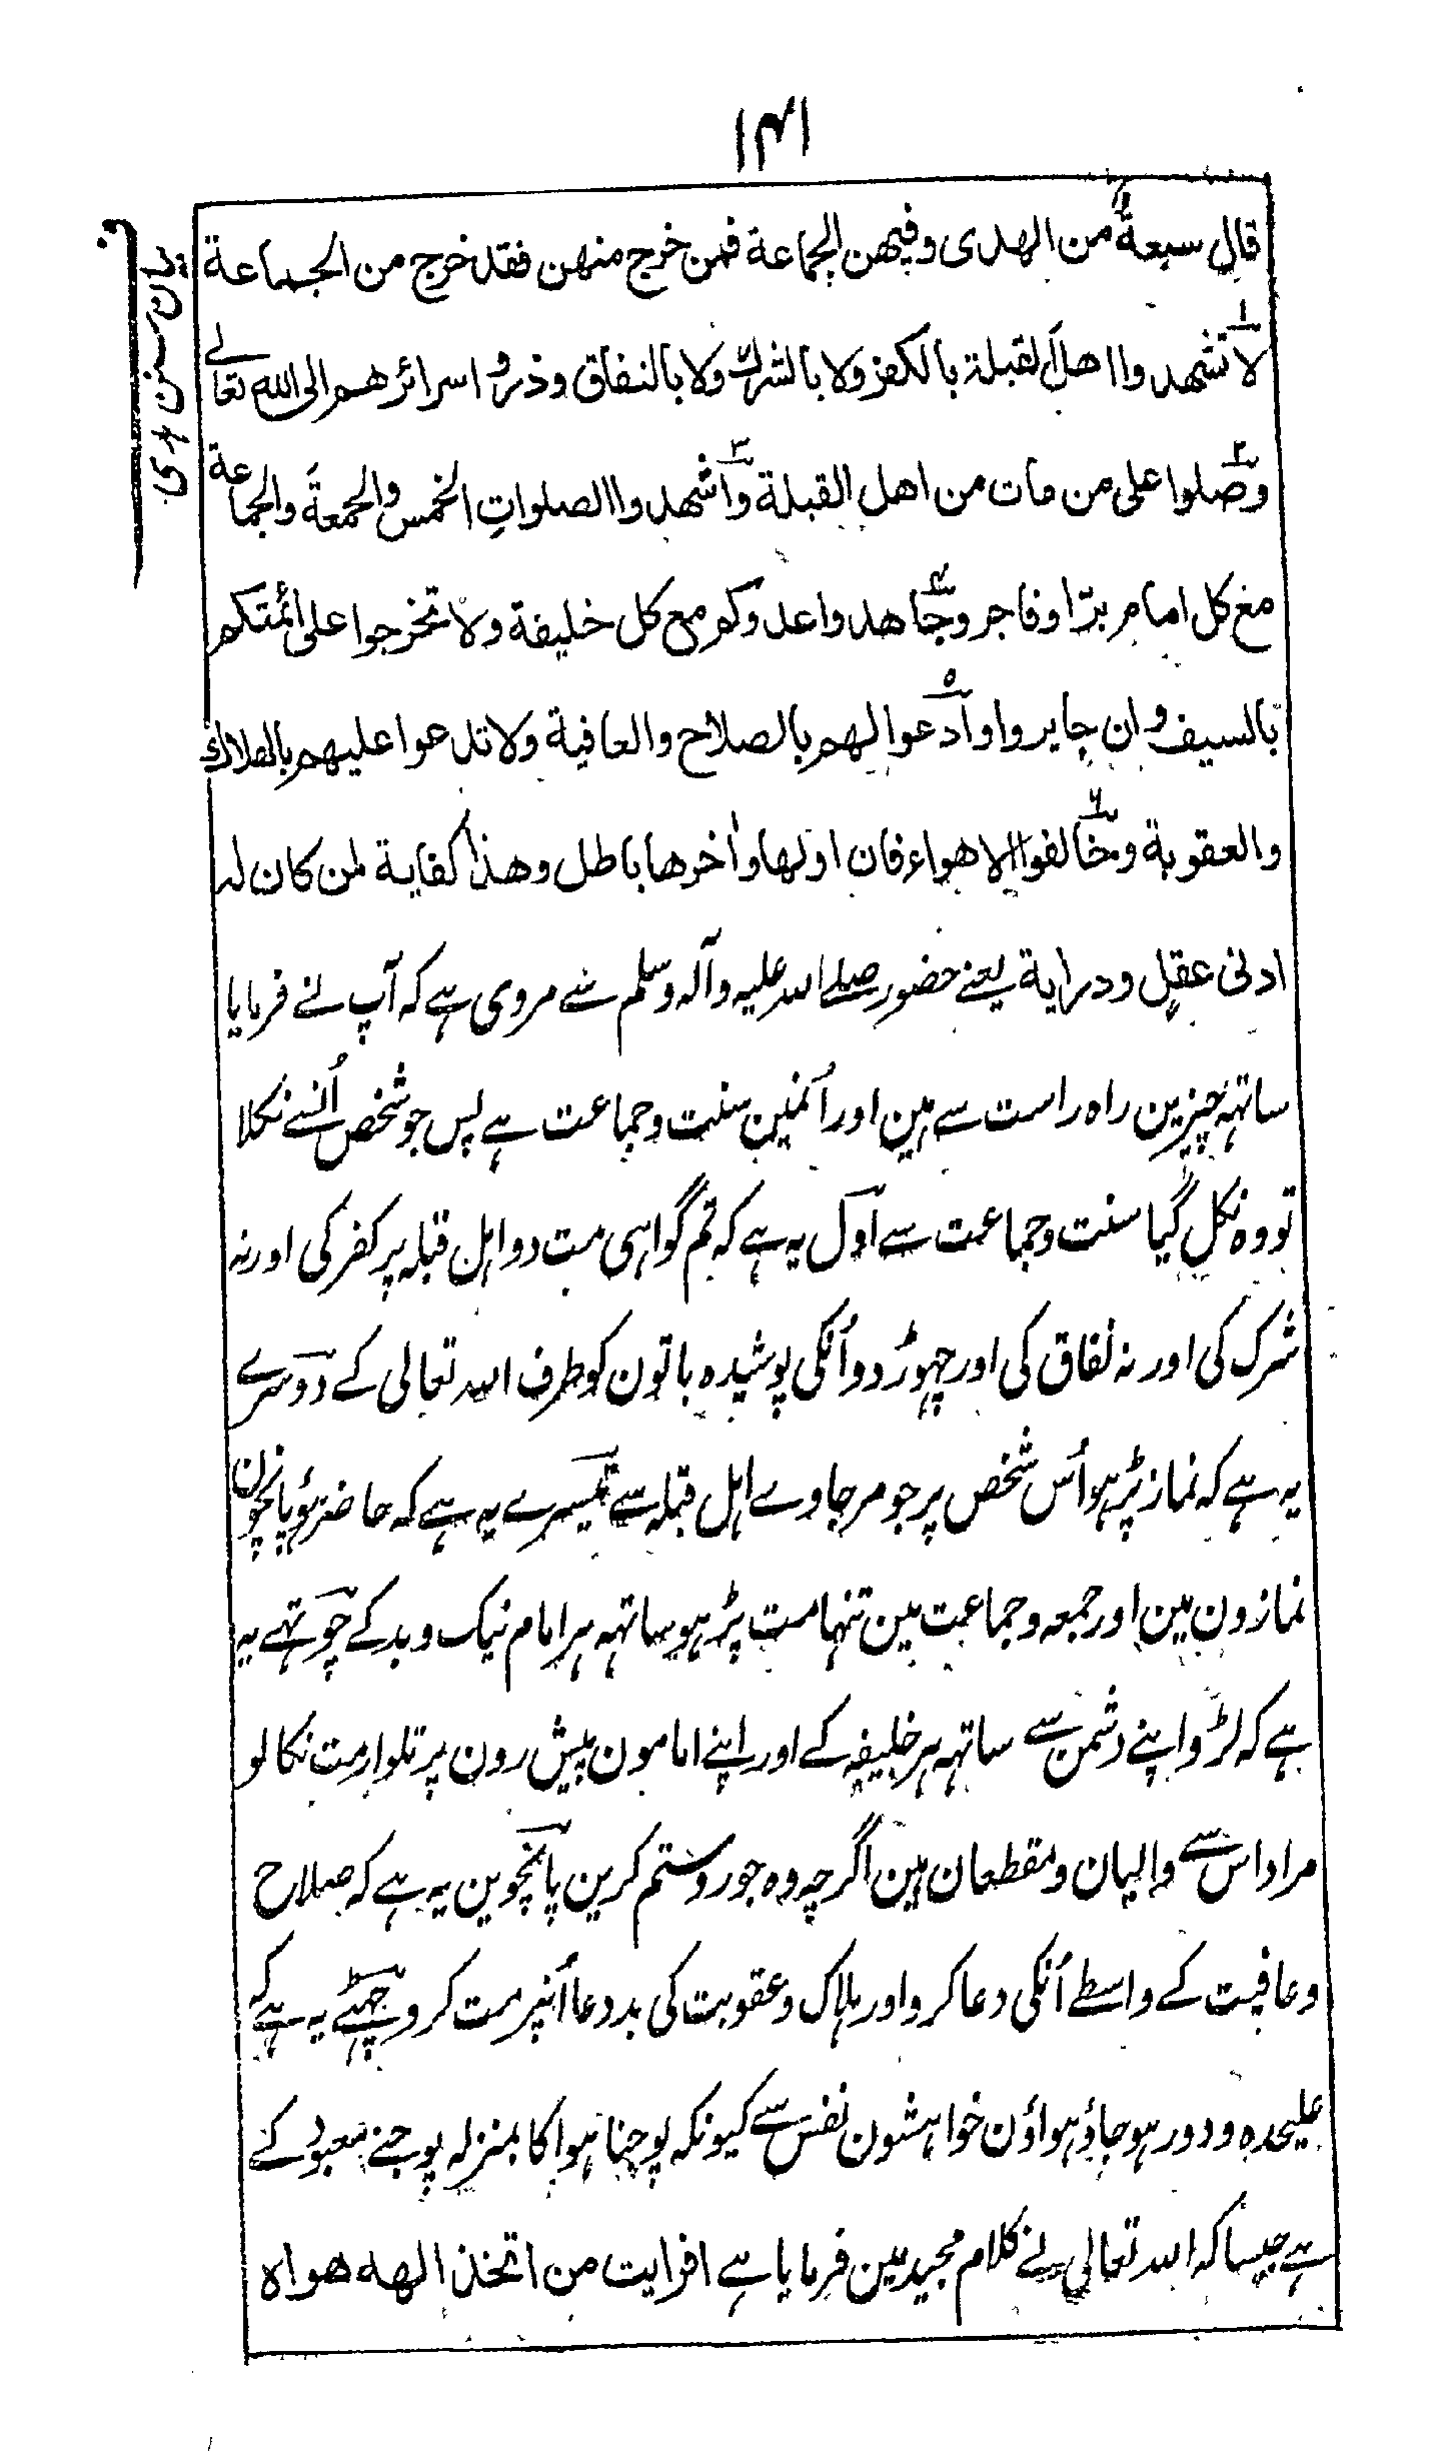 ۱۴۱
قال سبعة من الهدى وفيهن الجماعة فمن خرج منهن فقد خرج من الجماعة
لا تشهدوا اهل القبلة بالكفر ولا بالشرك ولا بالنفاق وذروا اسرائرهم الى الله تعالے
وصلوا على من مات من اهل القبلة واشهدوا الصلواتِ الخمس والجمعةَ والجماعة
مع كل امام برّ اوفاجر وجاهدوا عدوكم مع كل خليفة ولا تخرجوا على ائمتكم
بالسيف وان جايروا وادعوا لهم بالصلاح والعافية ولا تدعوا عليهم بالهلاك
والعقوبة وخالفوا الاهواء فان اولها واٰخرها باطل وهذا كفاية لمن كان له
ادنى عقل ودراية یعنے حضور صلے اللہ علیہ وآلہ وسلم سے مروی ہے کہ آپ نے فرمایا
ساتہہ چیزین راہ راست سے ہین اور اُنمین سنت وجماعت ہے پس جو شخص اُنسے نکلا
تو وہ نکل گیا سنت وجماعت سے اول یہ ہے کہ تم گواہی مت دو اہل قبلہ پر کفر کی اور نہ
شرک کی اور نہ نفاق کی اور چہوڑ دو اُنکی پوشیدہ باتون کو طرف اللہ تعالی کے دوسرے
یہ ہے کہ نماز پڑہو اُس شخص پر جو مر جاوے اہل قبلہ سے تیسرے یہ ہے کہ حاضر ہؤ پانچون
نمازون مین اور جمعہ وجماعت مین تنہا مت پڑہو ساتہہ ہر امام نیک وبد کے چوتہے یہ
ہے کہ لڑو اپنے دشمن سے ساتہہ ہر خلیفہ کے اور اپنے امامون پیش رون پر تلوار مت نکالو
مراد اس سے والیان ومقطعان ہین اگرچہ وہ جور وستم کرین پانچوین یہ ہے کہ صلاح
وعافیت کے واسطے اُنکی دعا کرو اور ہلاک وعقوبت کی بد دعا اُنپر مت کرو چہٹے یہ ہے کہ
علیحدہ ودور ہو جاؤ ہواؤن خواہشون نفس سے کیونکہ پوجنا ہوا کا بمنزلہ پوجنے معبود کے
ہے جیسا کہ اللہ تعالی نے کلام مجید مین فرمایا ہے افرايت من اتخذ الهه هواه
بیان سنن ہدی